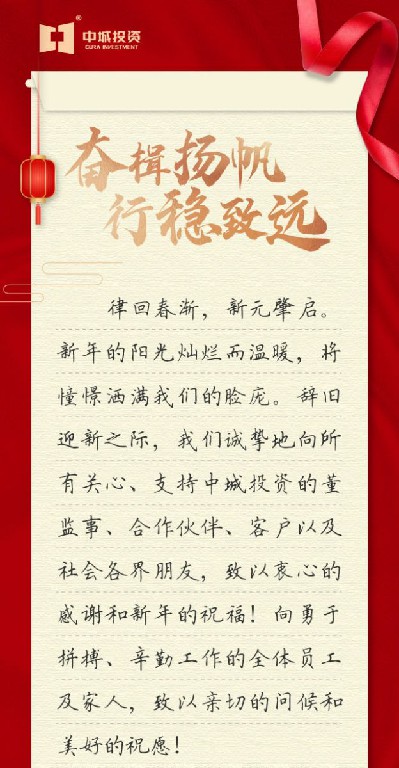 中城投资
CURA INVESTMENT
奋楫扬帆
行稳致远
律回春渐，新元肇启。
新年的阳光灿烂而温暖，将
憧憬洒满我们的脸庞。辞旧
迎新之际，我们诚挚地向所
有关心、支持中城投资的董
监事、合作伙伴、客户以及
社会各界朋友，致以衷心的
感谢和新年的祝福！向勇于
拼搏、辛勤工作的全体员工
及家人，致以亲切的问候和
美好的祝愿！